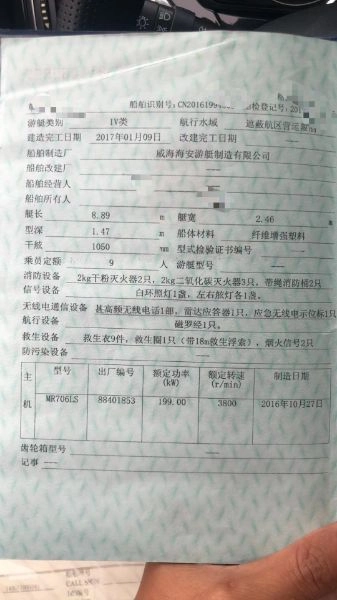 船舶识别号:CN20161994 船检登记号:201
游艇类别 IV类 航行水域 遮蔽航区营运
建造完工日期 2017年01月09日 改建完工日期 ——
船舶制造厂 威海海安游艇制造有限公司
船舶改建厂 ——
船舶经营人
船舶所有人
艇长 8.89 m 艇宽 2.46
型深 1.47 m 船体材料 纤维增强塑料
干舷 1050 mm 型式检验证书编号 ——
乘员定额 9 人 游艇型号 ——
消防设备 2kg干粉灭火器2只, 2kg二氧化碳灭火器3只, 带绳消防桶2只
信号设备 白环照灯1盏, 左右舷灯各1盏。
无线电通信设备 甚高频无线电话1部, 雷达应答器1只, 应急无线电示位标1只
航行设备 磁罗经1只。
救生设备 救生衣9件, 救生圈1只(带18m救生浮索), 烟火信号2只
防污染设备 ——
主机 型号 出厂编号 额定功率(kW) 额定转速(r/min) 制造日期
MR706LS 88401853 199.00 3800 2016年10月27日
齿轮箱型号 ——
记事 ——
CALL SIGN